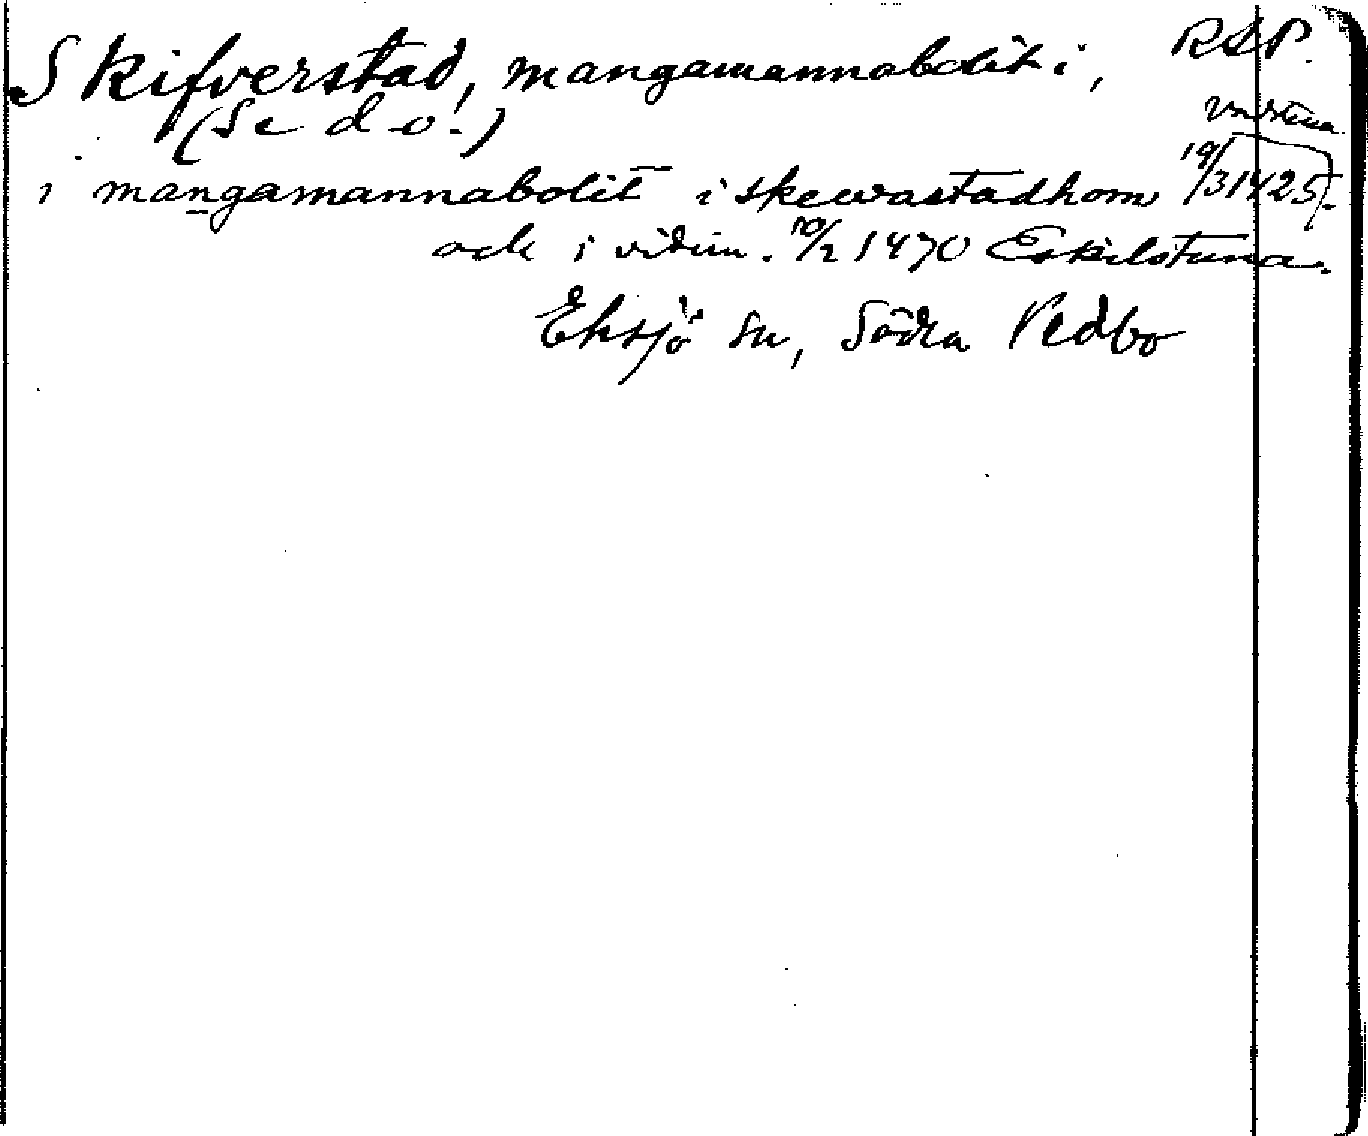 Skifverstad, mangamannabolit i, RSP.
(Se d o!) Vadstena
i mangamannabolit i skewastadhom 19/3 1425.
och i vidim. 10/2 1470 Eskilstuna.
Eksjö sn, Södra Vedbo